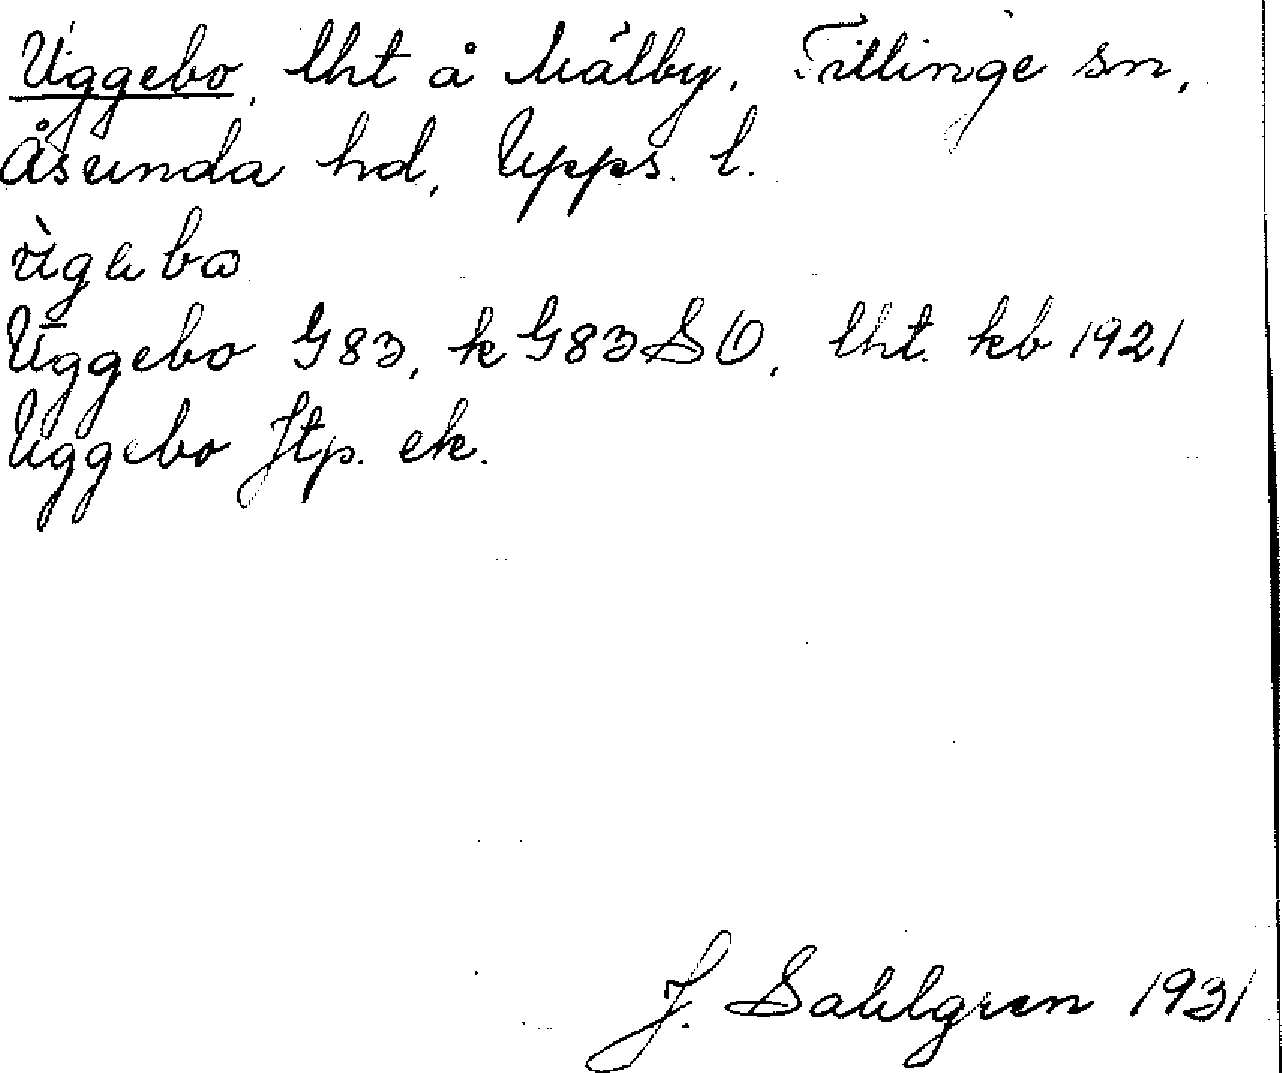 Uggebo, lht å Mälby, Tillinge sn,
Åsunda hd, Upps. l.
Uggebo G83, k G83SO, lht. kb 1921
Uggebo Jtp. ek.
J. Sahlgren 1931